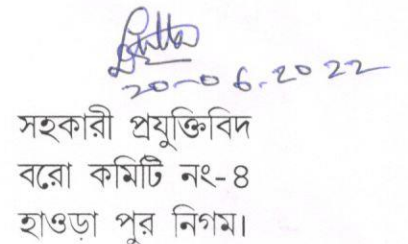 20-06.2022
সহকারী প্রযুক্তিবিদ
বরো কমিটি নং-৪
হাওড়া পুর নিগম।